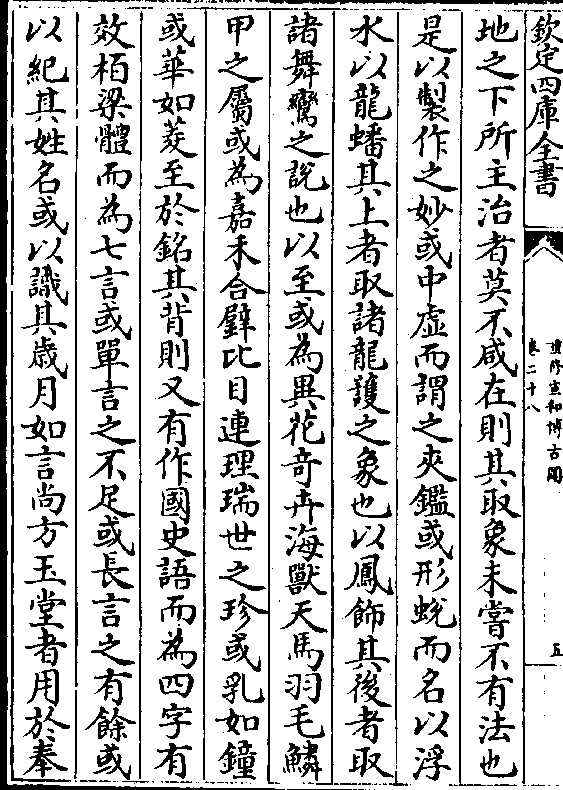 欽定四庫全書
重修宣和博古圖
卷二十八
五
地之下所主治者莫不咸在則其取象未嘗不有法也
是以製作之妙或中虚而謂之夾鑑或形蛻而名以浮
水以龍蟠其上者取諸龍䕶之象也以鳳飾其後者取
諸舞鸞之說也以至或為異花奇卉海獸天馬羽毛鱗
甲之屬或為嘉禾合璧比目連理瑞世之珍或乳如鐘
或華如菱至於銘其背則又有作國史語而為四字有
效栢梁體而為七言或單言之不足或長言之有餘或
以紀其姓名或以識其歲月如言尚方玉堂者用於奉